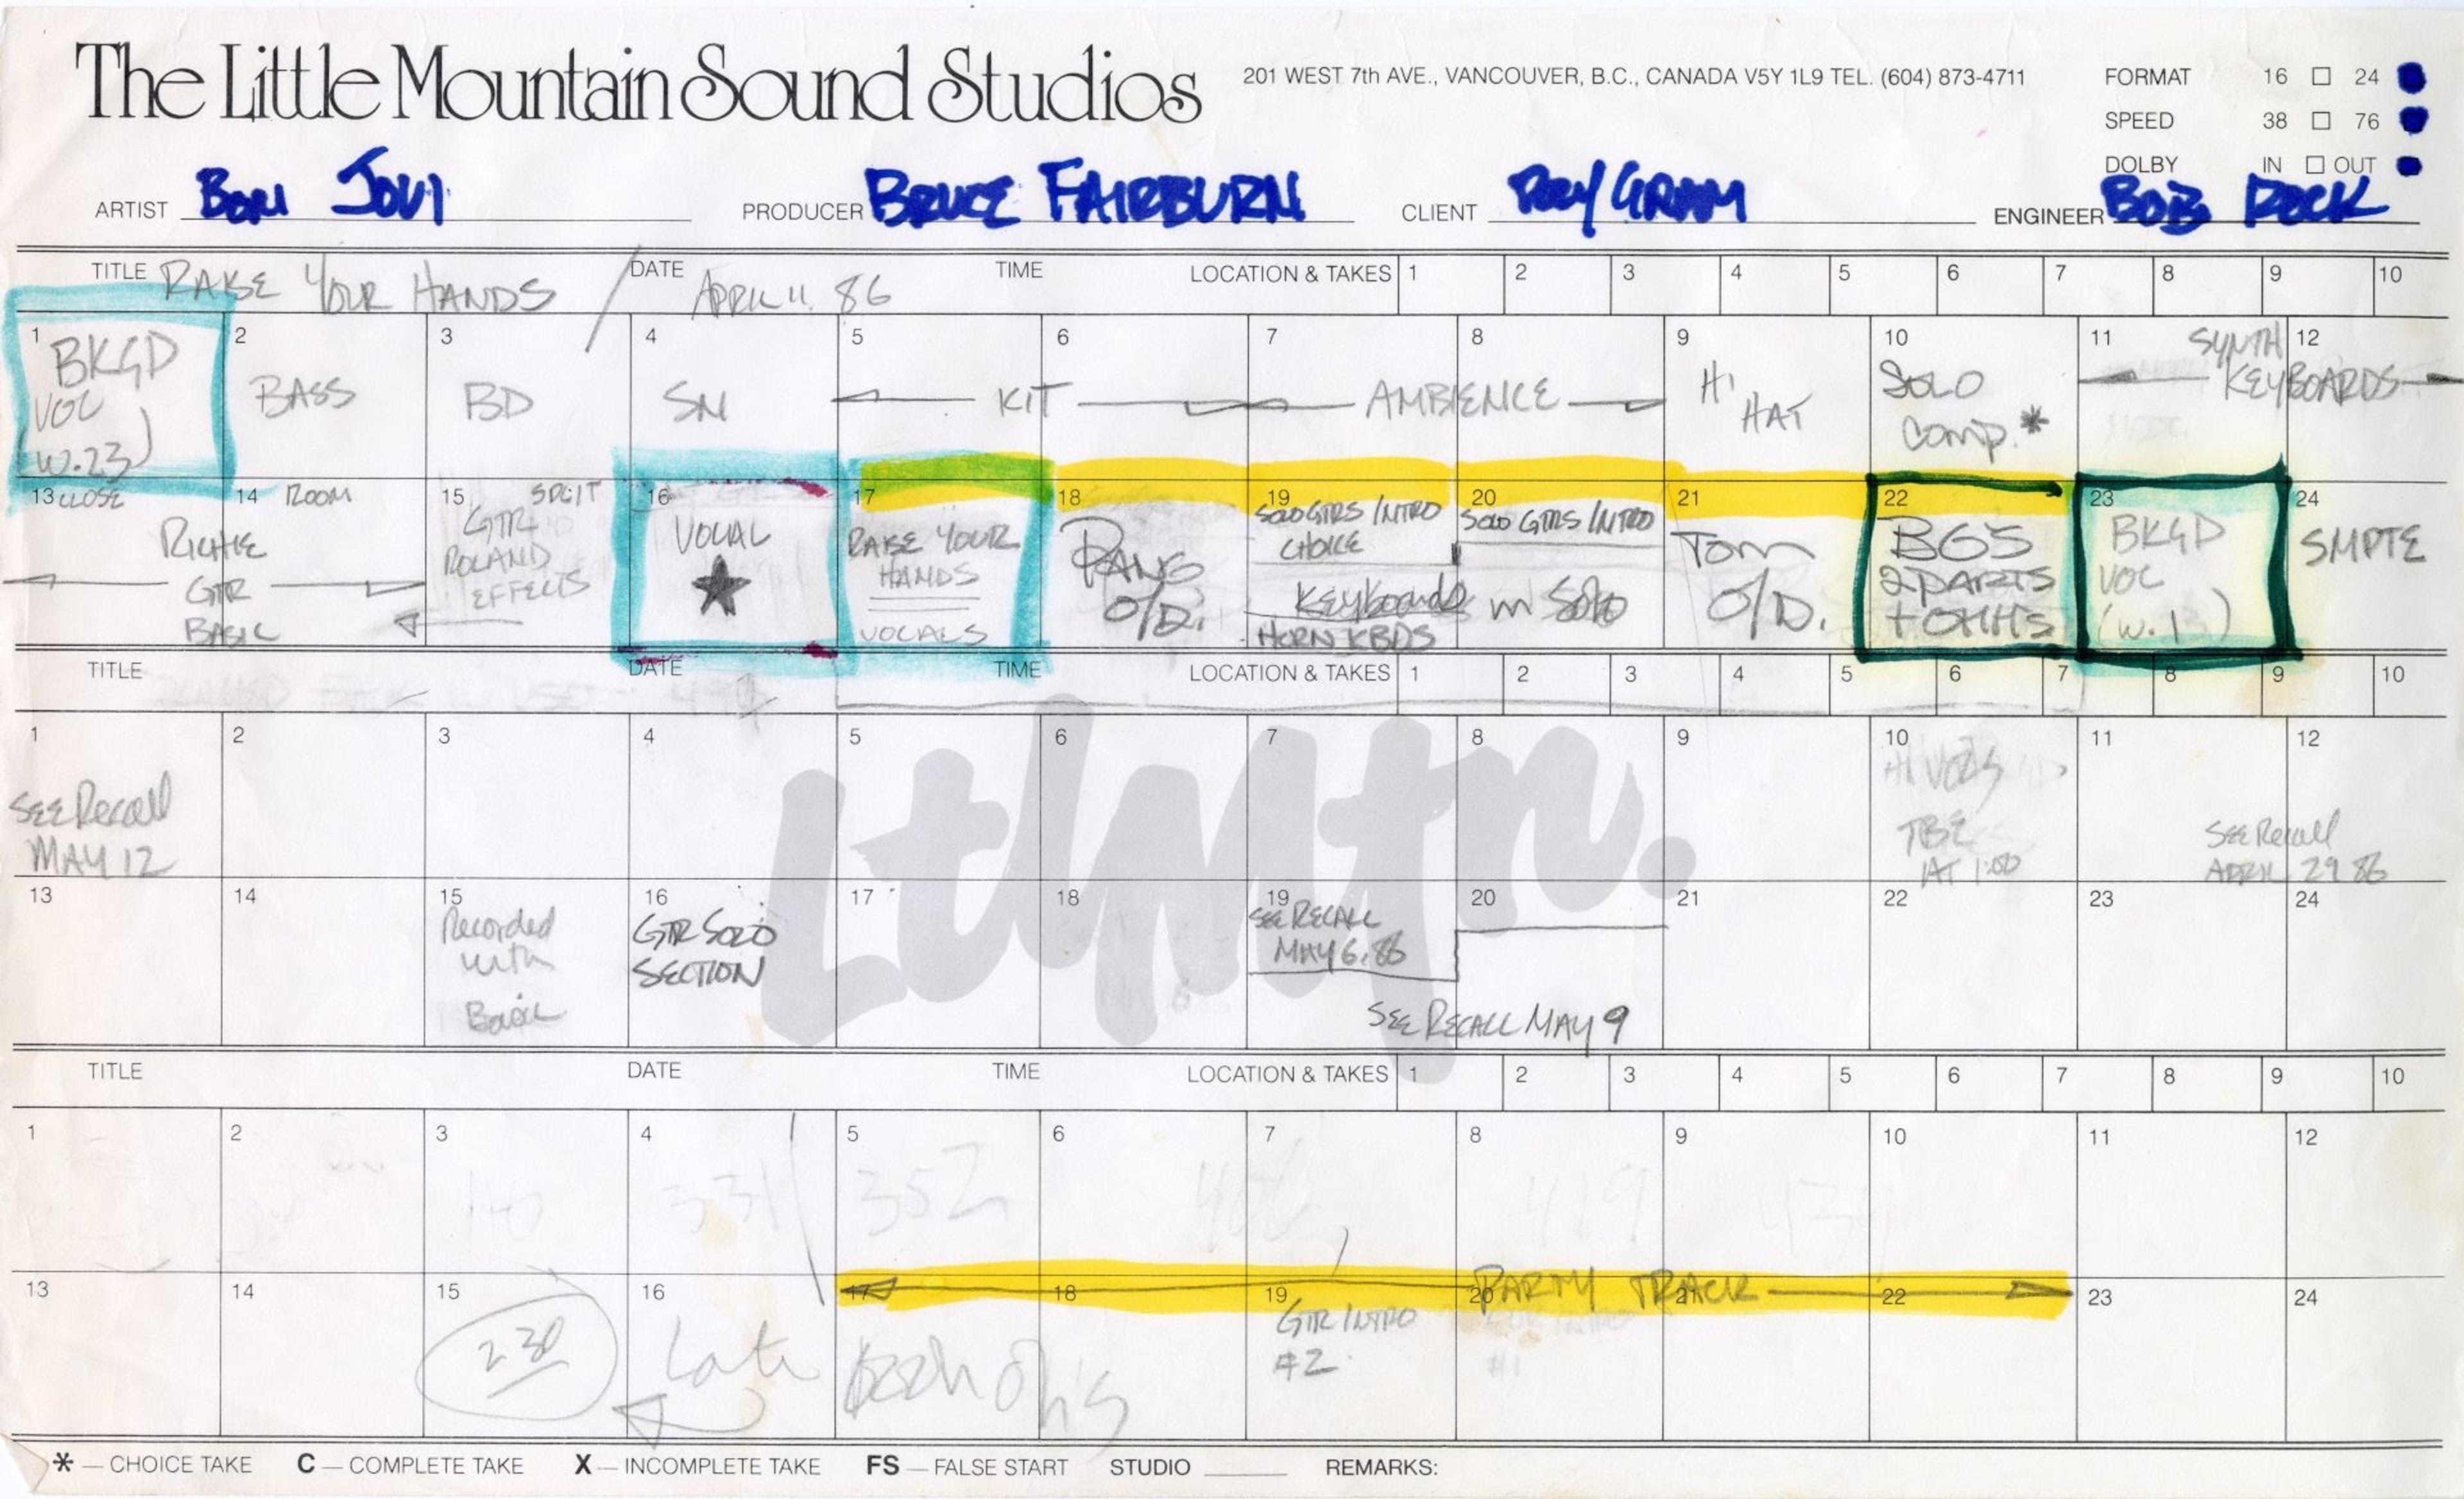 The Little Mountain Sound Studios
201 WEST 7th AVE., VANCOUVER, B.C., CANADA V5Y 1L9 TEL. (604) 873-4711
FORMAT 16 □ 24
SPEED 38 □ 76
DOLBY IN □ OUT
ARTIST BON JOVI PRODUCER BRUCE FAIRBURN CLIENT POLY GRAM ENGINEER BOB ROCK
TITLE RAISE YOUR HANDS / DATE APRIL 11. 86 TIME LOCATION & TAKES 1 2 3 4 5 6 7 8 9 10
1 BKGD VOC (W.23)
2 BASS
3 BD
4 SN
5 KIT 6
7 AMBIENCE 8
9 HI HAT
10 SOLO COMP. *
11 SYNTH KEYBOARDS 12
13 CLOSE 14 ROOM
RICHIE
GTR
BASIC
15 SPLIT
GTR
ROLAND
EFFECTS
16 VOCAL ★
17 RAISE YOUR
HANDS
VOCALS
18 PANG
O/D.
19 SOLO GTRS / INTRO
CHOICE
Keyboards
HORN KBDS
20 SOLO GTRS / INTRO
in Solo
21 TOM
O/D.
22 BGS
2 PARTS
+ OHH'S
23 BKGD
VOC
(W.1)
24 SMPTE
TITLE DATE TIME LOCATION & TAKES 1 2 3 4 5 6 7 8 9 10
1 2 3 4 5 6 7 8 9 10 11 12
SEE Recall
MAY 12
TBE
AT 1:00
SEE Recall
APRIL 29 86
LtlMtn.
13 14 15 16 17 18 19 20 21 22 23 24
Recorded
with
Basic
GTR SOLO
SECTION
SEE RECALL
MAY 6. 86
SEE RECALL MAY 9
TITLE DATE TIME LOCATION & TAKES 1 2 3 4 5 6 7 8 9 10
1 2 3 4 5 6 7 8 9 10 11 12
331 352 419
13 14 15 16 17 18 19 20 21 22 23 24
PARTY TRACK
GTR INTRO
#2
#1
2 30
Late
* — CHOICE TAKE C — COMPLETE TAKE X — INCOMPLETE TAKE FS — FALSE START STUDIO REMARKS: